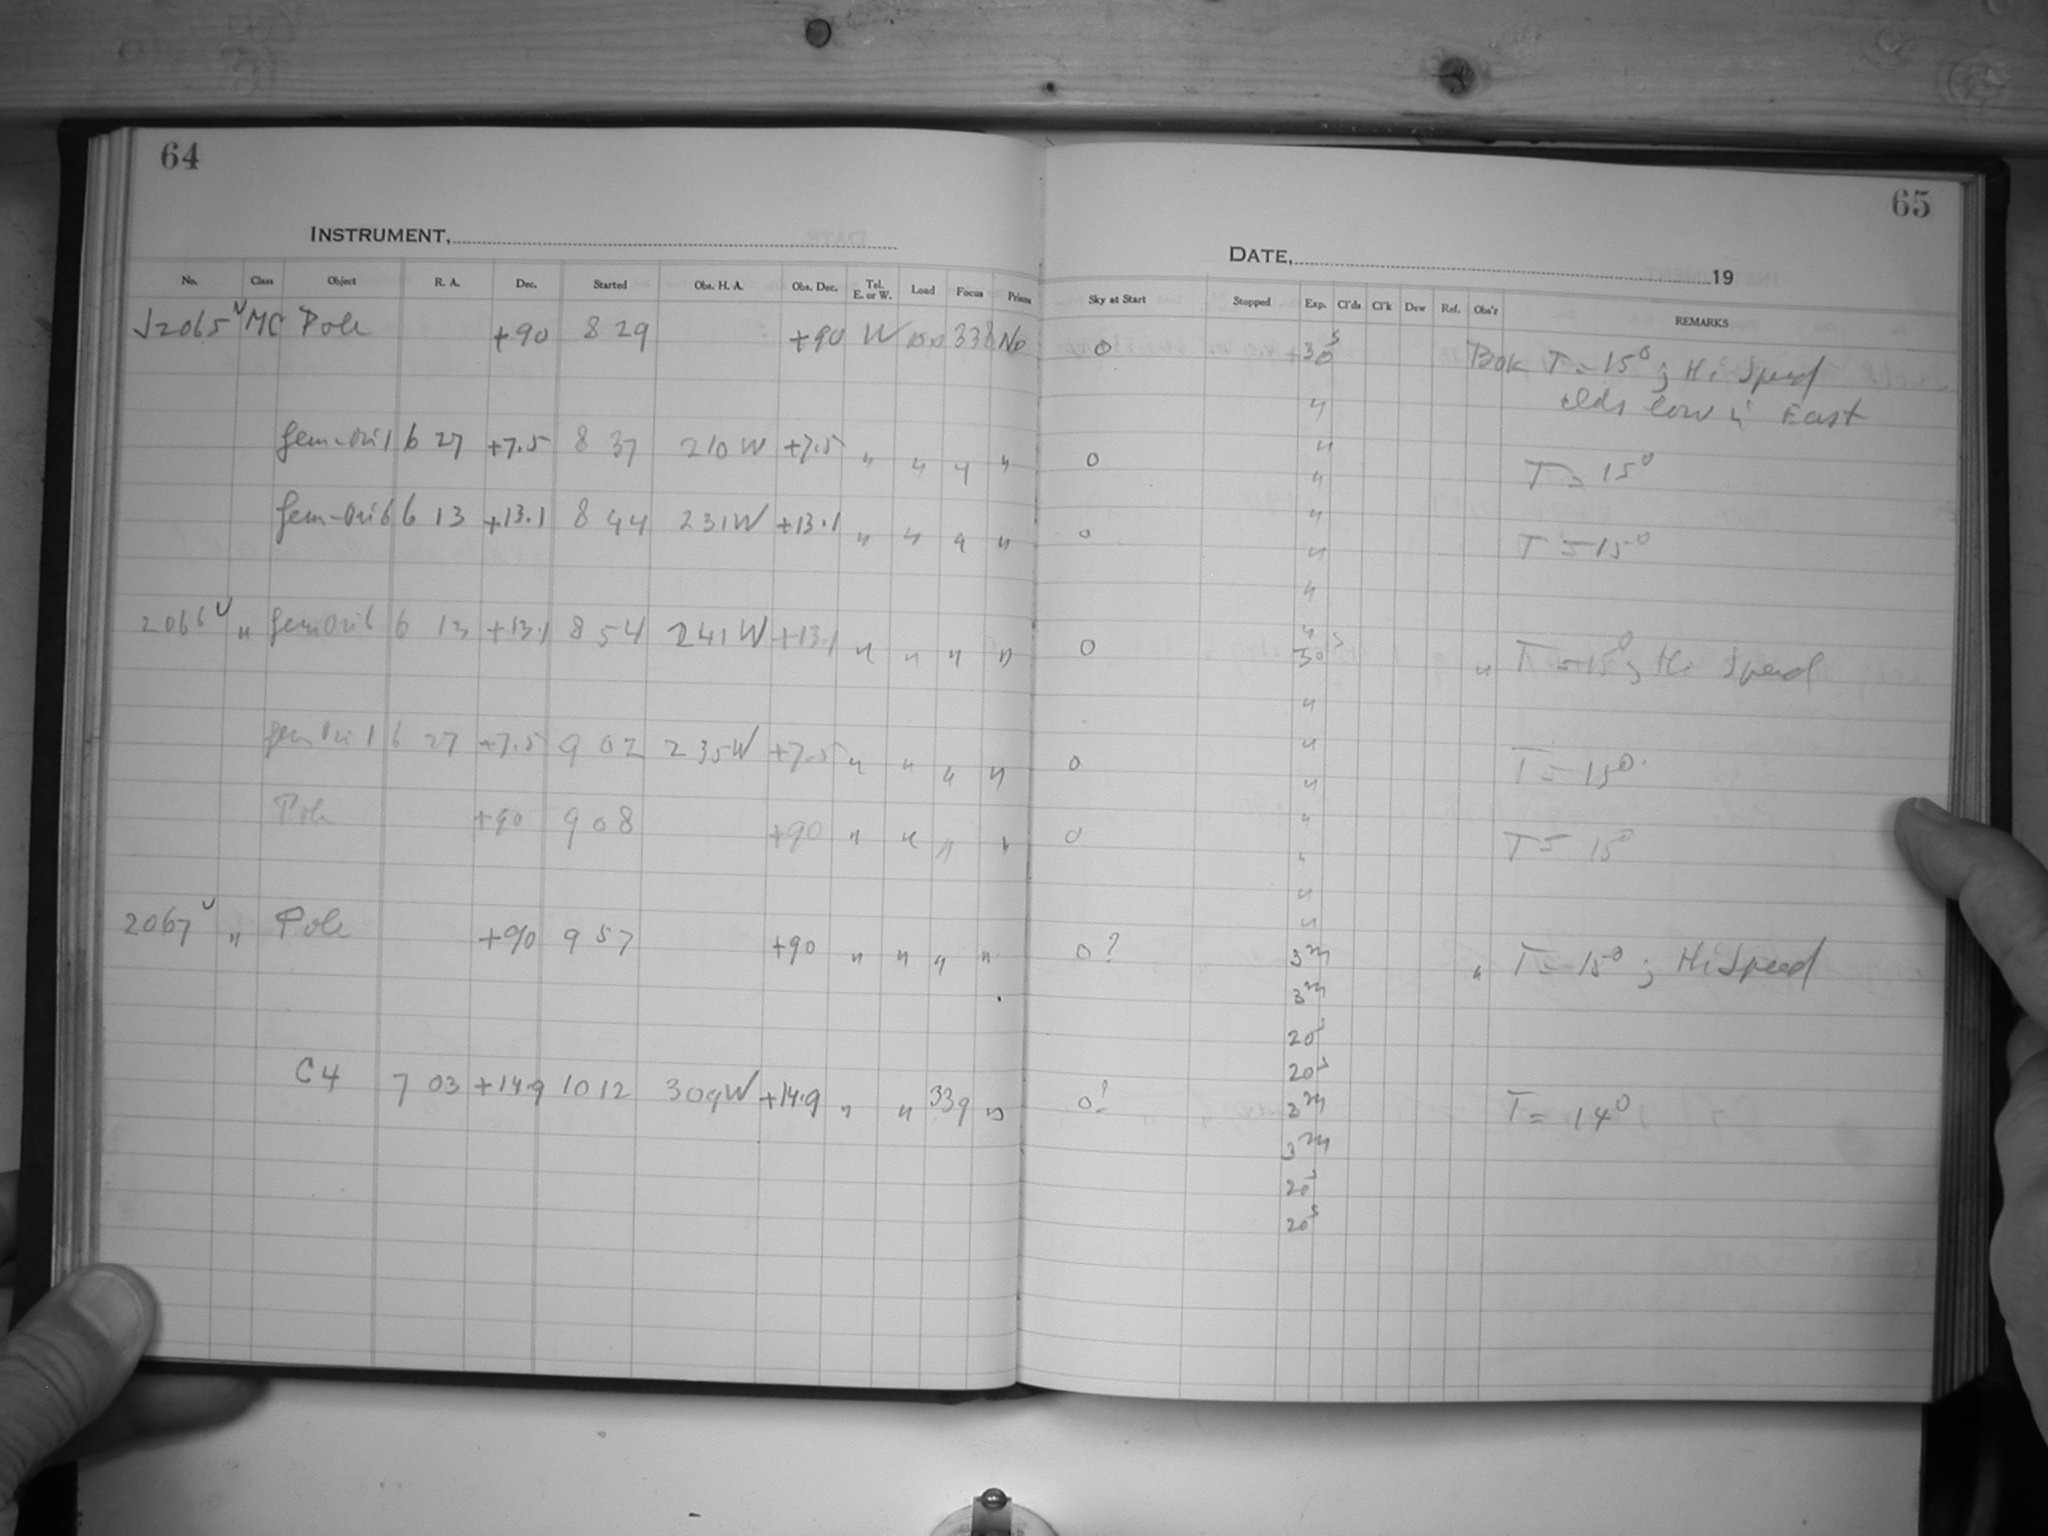 64
65
INSTRUMENT,
DATE, 19
No. Class Object R. A. Dec. Started Obs. H. A. Obs. Dec. Tel. E. or W. Load Focus Prisms Sky at Start Stopped Exp. Cl'ds Cl'k Dew Ref. Obs'r REMARKS
J2065 MC Pole +90 8 29 +90 W 338 No 0 30s Bok T = 15° ; Hi Speed
" clds low in East
Gem-Ori 1 6 27 +7.5 8 37 210 W +7.5 " " " " 0 " T = 15°
"
Gem-Ori 6 6 13 +13.1 8 44 231 W +13.1 " " " " 0 " T = 15°
"
"
"
2066 " Gem Ori 6 6 13 +13.1 8 54 241 W +13.1 " " " " 0 30s " T = 15° ; Hi Speed
"
Gem Ori 1 6 27 +7.5 9 02 235 W +7.5 " " " " 0 " T = 15°
"
Pole +90 9 08 +90 " " " " 0 " T = 15°
"
"
"
2067 " Pole +90 9 57 +90 " " " " 0? 3m " T = 15° ; Hi Speed
3m
20s
20s
C4 7 03 +14.9 10 12 309 W +14.9 " " 339 " 0? 3m T = 14°
3m
20s
20s